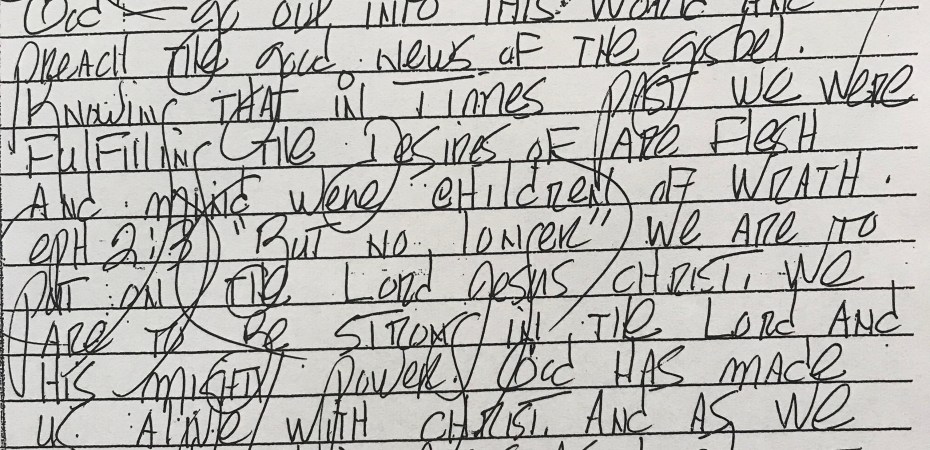 God - go out into this world and
preach the good news of the gosbel.
Knowing that in Times past we were
Fulfilling the Desires of are Flesh
And mind were children of wrath.
eph 2:3 "But no longer" we are to
put on the Lord Jesus Christ. We
are to be strong in the Lord and
His mighty power. God has made
us alive with Christ. And as we